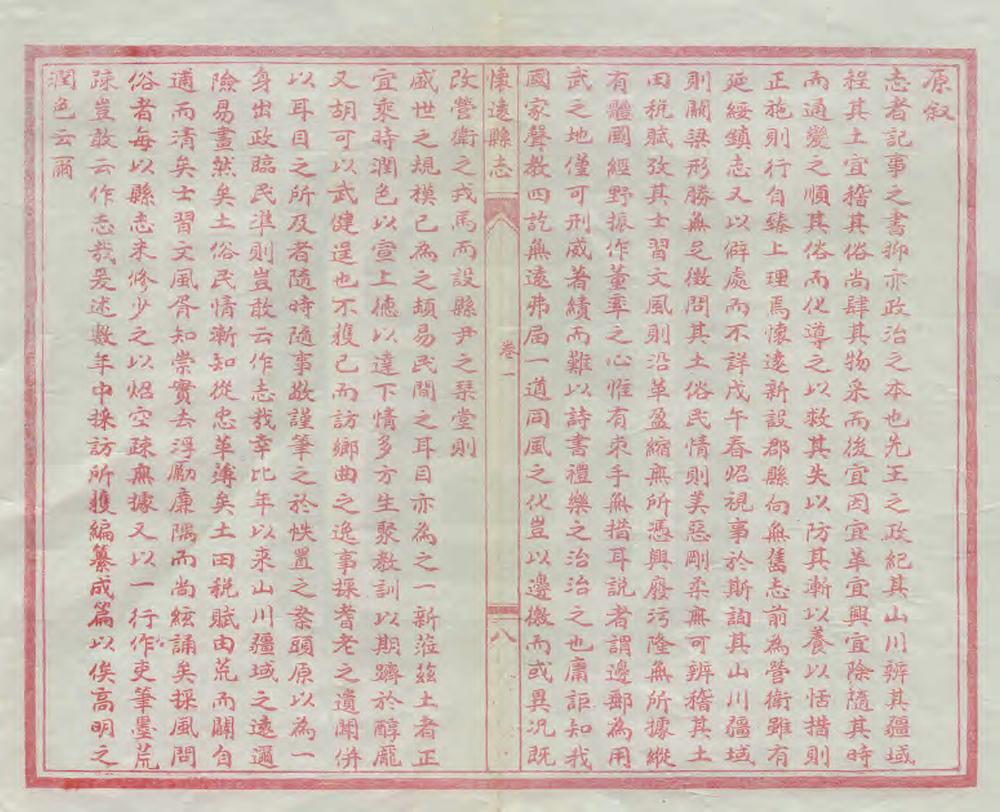 原叙
志者記事之書抑亦政治之本也先王之政紀其山川辨其疆域
程其土宜稽其俗尚肆其物采而後宜因宜革宜興宜除隨其時
而通變之順其俗而化導之以救其失以防其漸以養以恬措則
正施則行自臻上理焉懷遠新設郡縣向無舊志前為營衛雖有
延綏鎮志又以僻處而不詳戊午春炤視事於斯詢其山川疆域
則關梁形勝無足徵問其土俗民情則美惡剛柔無可辨稽其土
田稅賦攷其士習文風則沿革盈縮無所憑興廢污隆無所據縱
有體國經野振作董率之心惟有束手無措耳説者謂邊鄙為用
武之地僅可刑威著績而難以詩書禮樂之治治之也庸詎知我
國家聲教四訖無遠弗屆一道同風之化豈以邊徼而或異況既
懷遠縣志
卷一
八
改營衛之戎馬而設縣尹之琹堂則
盛世之規模已為之頓易民間之耳目亦為之一新蒞茲土者正
宜乘時潤色以宣上德以達下情多方生聚教訓以期躋於醇龐
又胡可以武健逞也不獲已而訪鄉曲之逸事採耆老之遺聞併
以耳目之所及者隨時隨事敬謹筆之於帙置之案頭原以為一
身出政臨民準則豈敢云作志哉幸比年以來山川疆域之遠邇
險易畫然矣土俗民情漸知從忠革薄矣土田稅賦由荒而闢自
逋而清矣士習文風胥知崇實去浮勵廉隅而尚絃誦矣採風問
俗者每以縣志未修少之以炤空疎無據又以一行作吏筆墨荒
疎豈敢云作志哉爰述數年中採訪所獲編纂成篇以俟高明之
潤色云爾